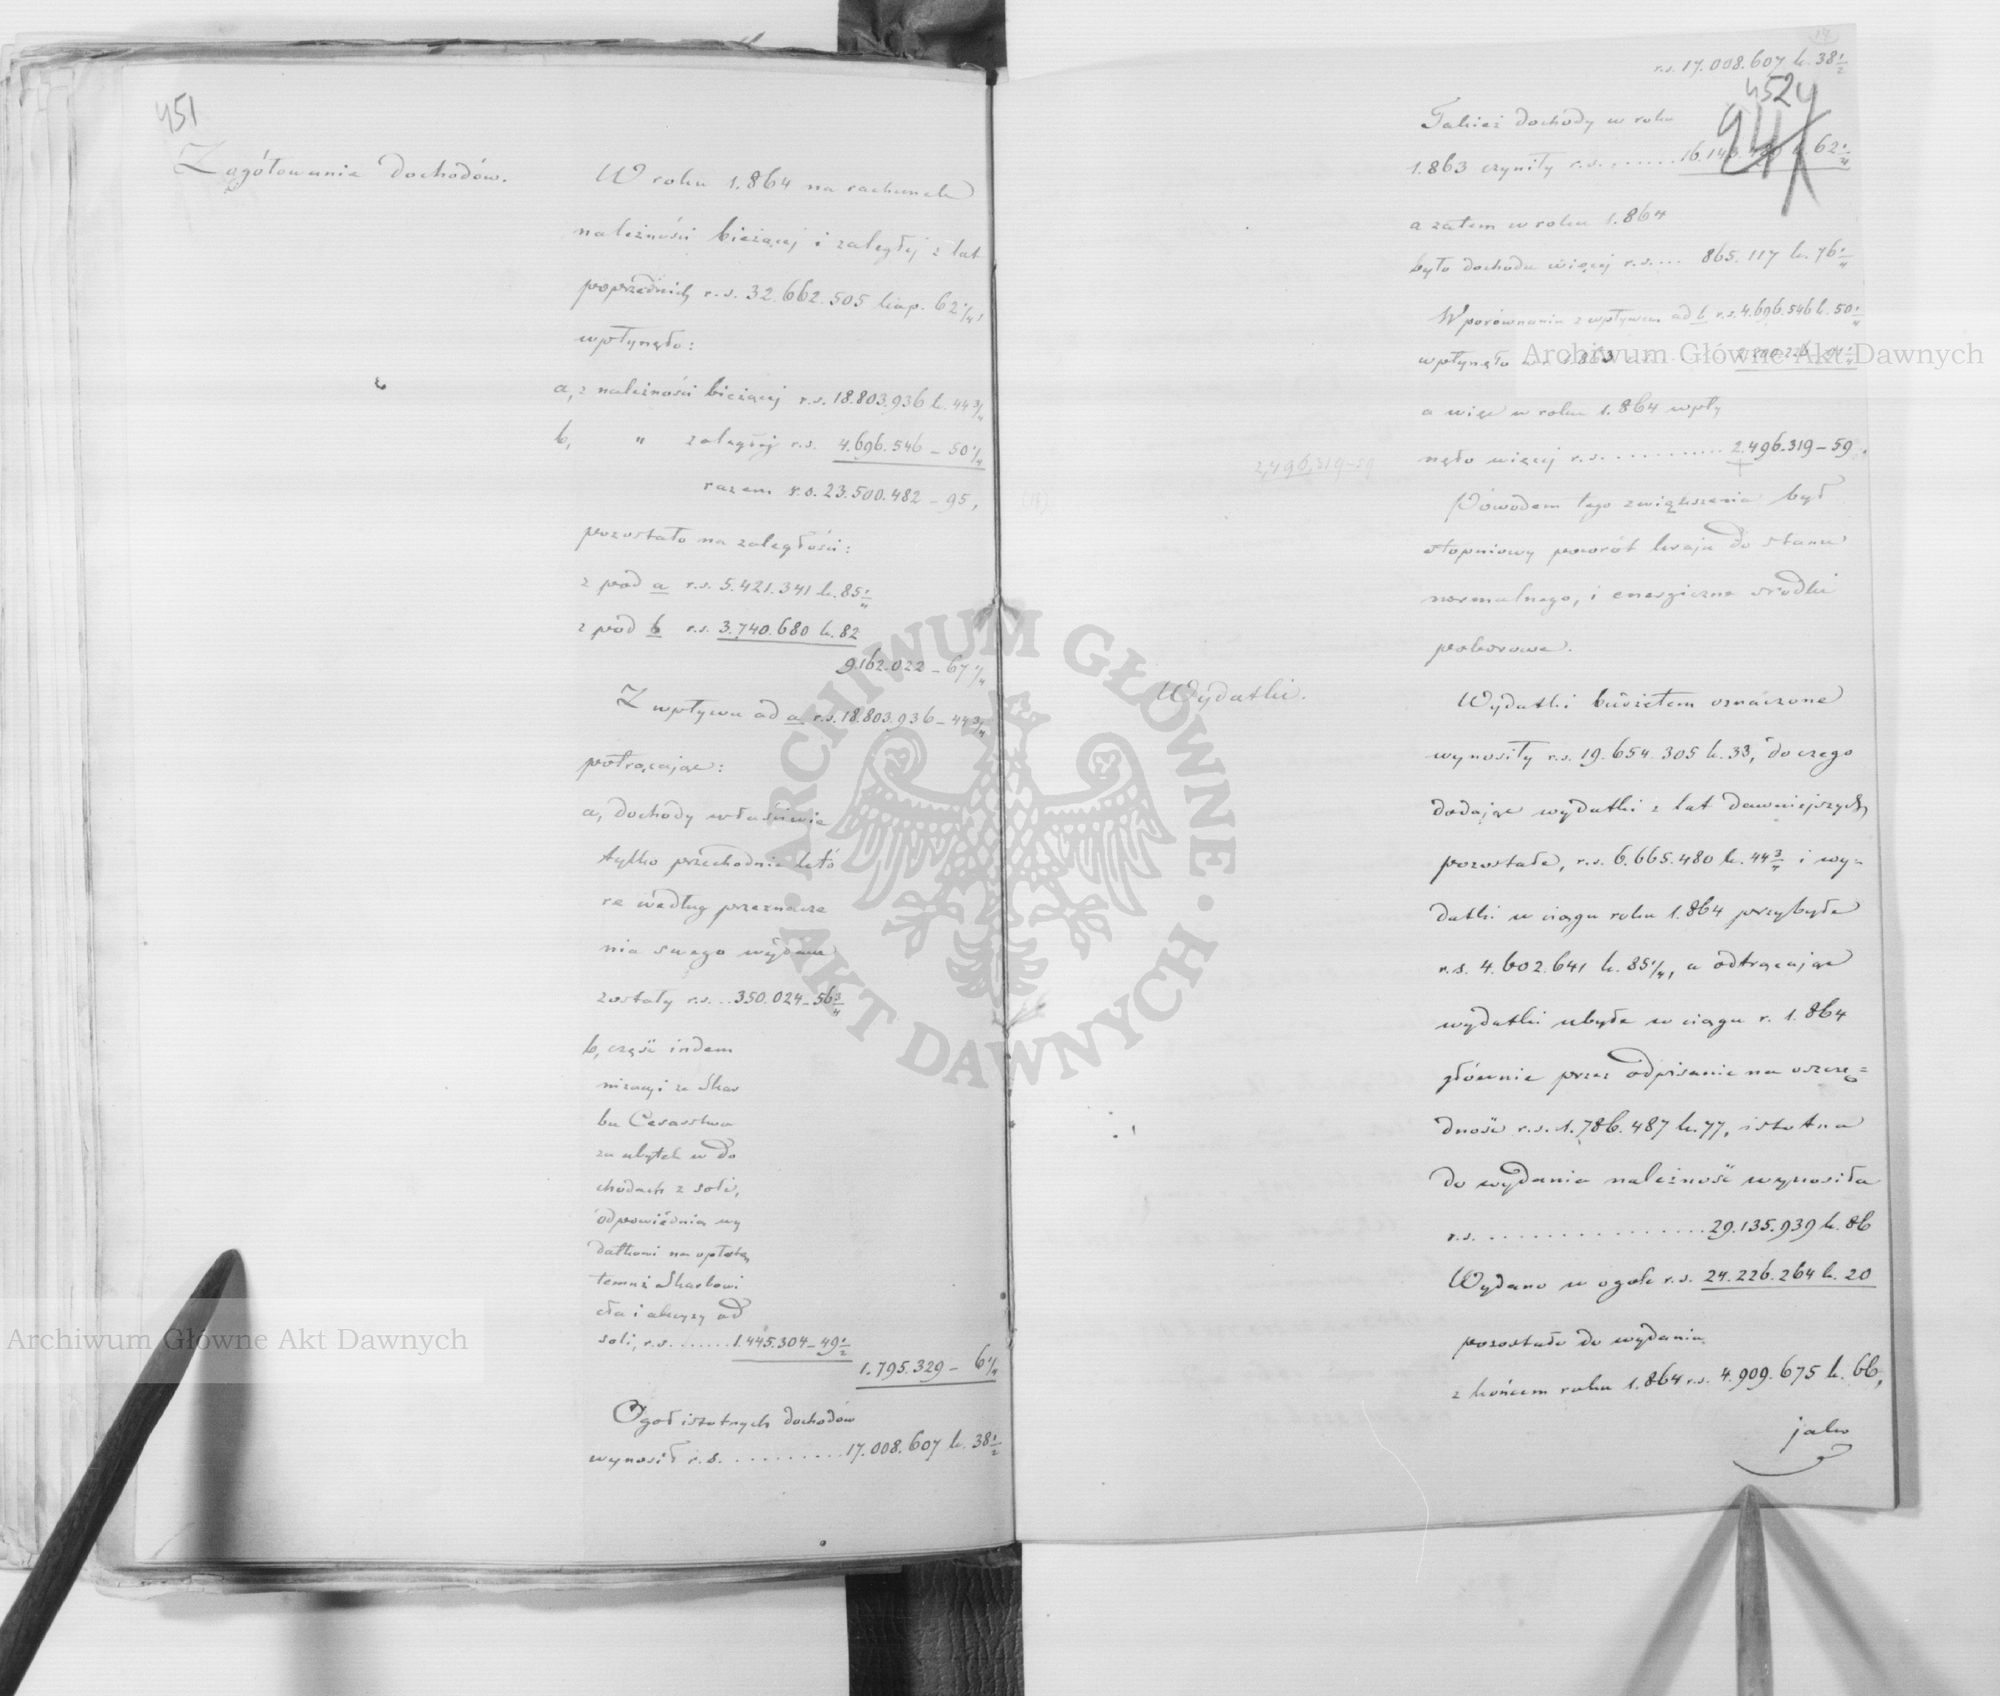 451
Zogółowanie dochodów.
W roku 1.864 na rachunek
należności bieżącej i zaległej z lat
poprzednich r.s. 32.662.505 kop. 62 1/4,
wpłynęło:
a, z należności bieżącej r.s. 18.803.936 k. 44 3/4
b, " zaległej r.s. 4.696.546 – 50 1/4
razem r.s. 23.500.482 – 95,
pozostało na zaległości:
z pod a r.s. 5.421.341 k. 85 1/4
z pod b r.s. 3.740.680 k. 82
9.162.022 – 67 1/4
Z wpływu ad a r.s. 18.803.936 – 44 3/4
potrącając:
a, dochody właściwie
tylko przechodnie któ
re według przeznacze
nia swego wydane
zostały r.s. .. 350.024 – 56 3/4
b, część indem
nizacyi ze Skar
bu Cesarstwa
za ubytek w do
chodach z soli,
odpowiednią wy
datkowi na opłatę
temuż Skarbowi
cła i akcyzy od
soli, r.s. ...... 1.445.304 – 49 1/2
1.795.329 – 6 1/4
Ogół istotnych dochodów
wynosił r.s. .......... 17.008.607 k. 38 1/2
r.s. 17.008.607 k. 38 1/2
452
Takież dochody w roku
1.863 czyniły r.s. ....... 16.143. k. 62 1/4
a zatem w roku 1.864
było dochodu więcej r.s. ... 865.117 k. 76 1/4
W porównaniu z wpływem ad b r.s. 4.696.546 k. 50 1/4
wpłynęło w r. 1863 r.s.
a więc w roku 1.864 wpły
nęło więcej r.s. ........... 2.496.319 – 59.
2,496,319–59
Powodem tego zwiększenia był
stopniowy powrót kraju do stanu
normalnego, i energiczne środki
poborowe.
Wydatki.
Wydatki budżetem oznaczone
wynosiły r.s. 19.654.305 k. 33, do czego
dodając wydatki z lat dawniejszych
pozostałe, r.s. 6.665.480 k. 44 3/4 i wy-
datki w ciągu roku 1.864 przybyłe
r.s. 4.602.641 k. 85 1/4, a odtrącając
wydatki ubyłe w ciągu r. 1.864
głównie przez odpisanie na oszczę=
dność r.s. 1.786.487 k. 77, istotna
do wydania należność wynosiła
r.s. ................ 29.135.939 k. 86
Wydano w ogóle r.s. 24.226.264 k. 20
pozostało do wydania
z końcem roku 1.864 r.s. 4.909.675 k. 66,
jako
Archiwum Główne Akt Dawnych
Archiwum Główne Akt Dawnych
ARCHIWUM GŁÓWNE
AKT DAWNYCH